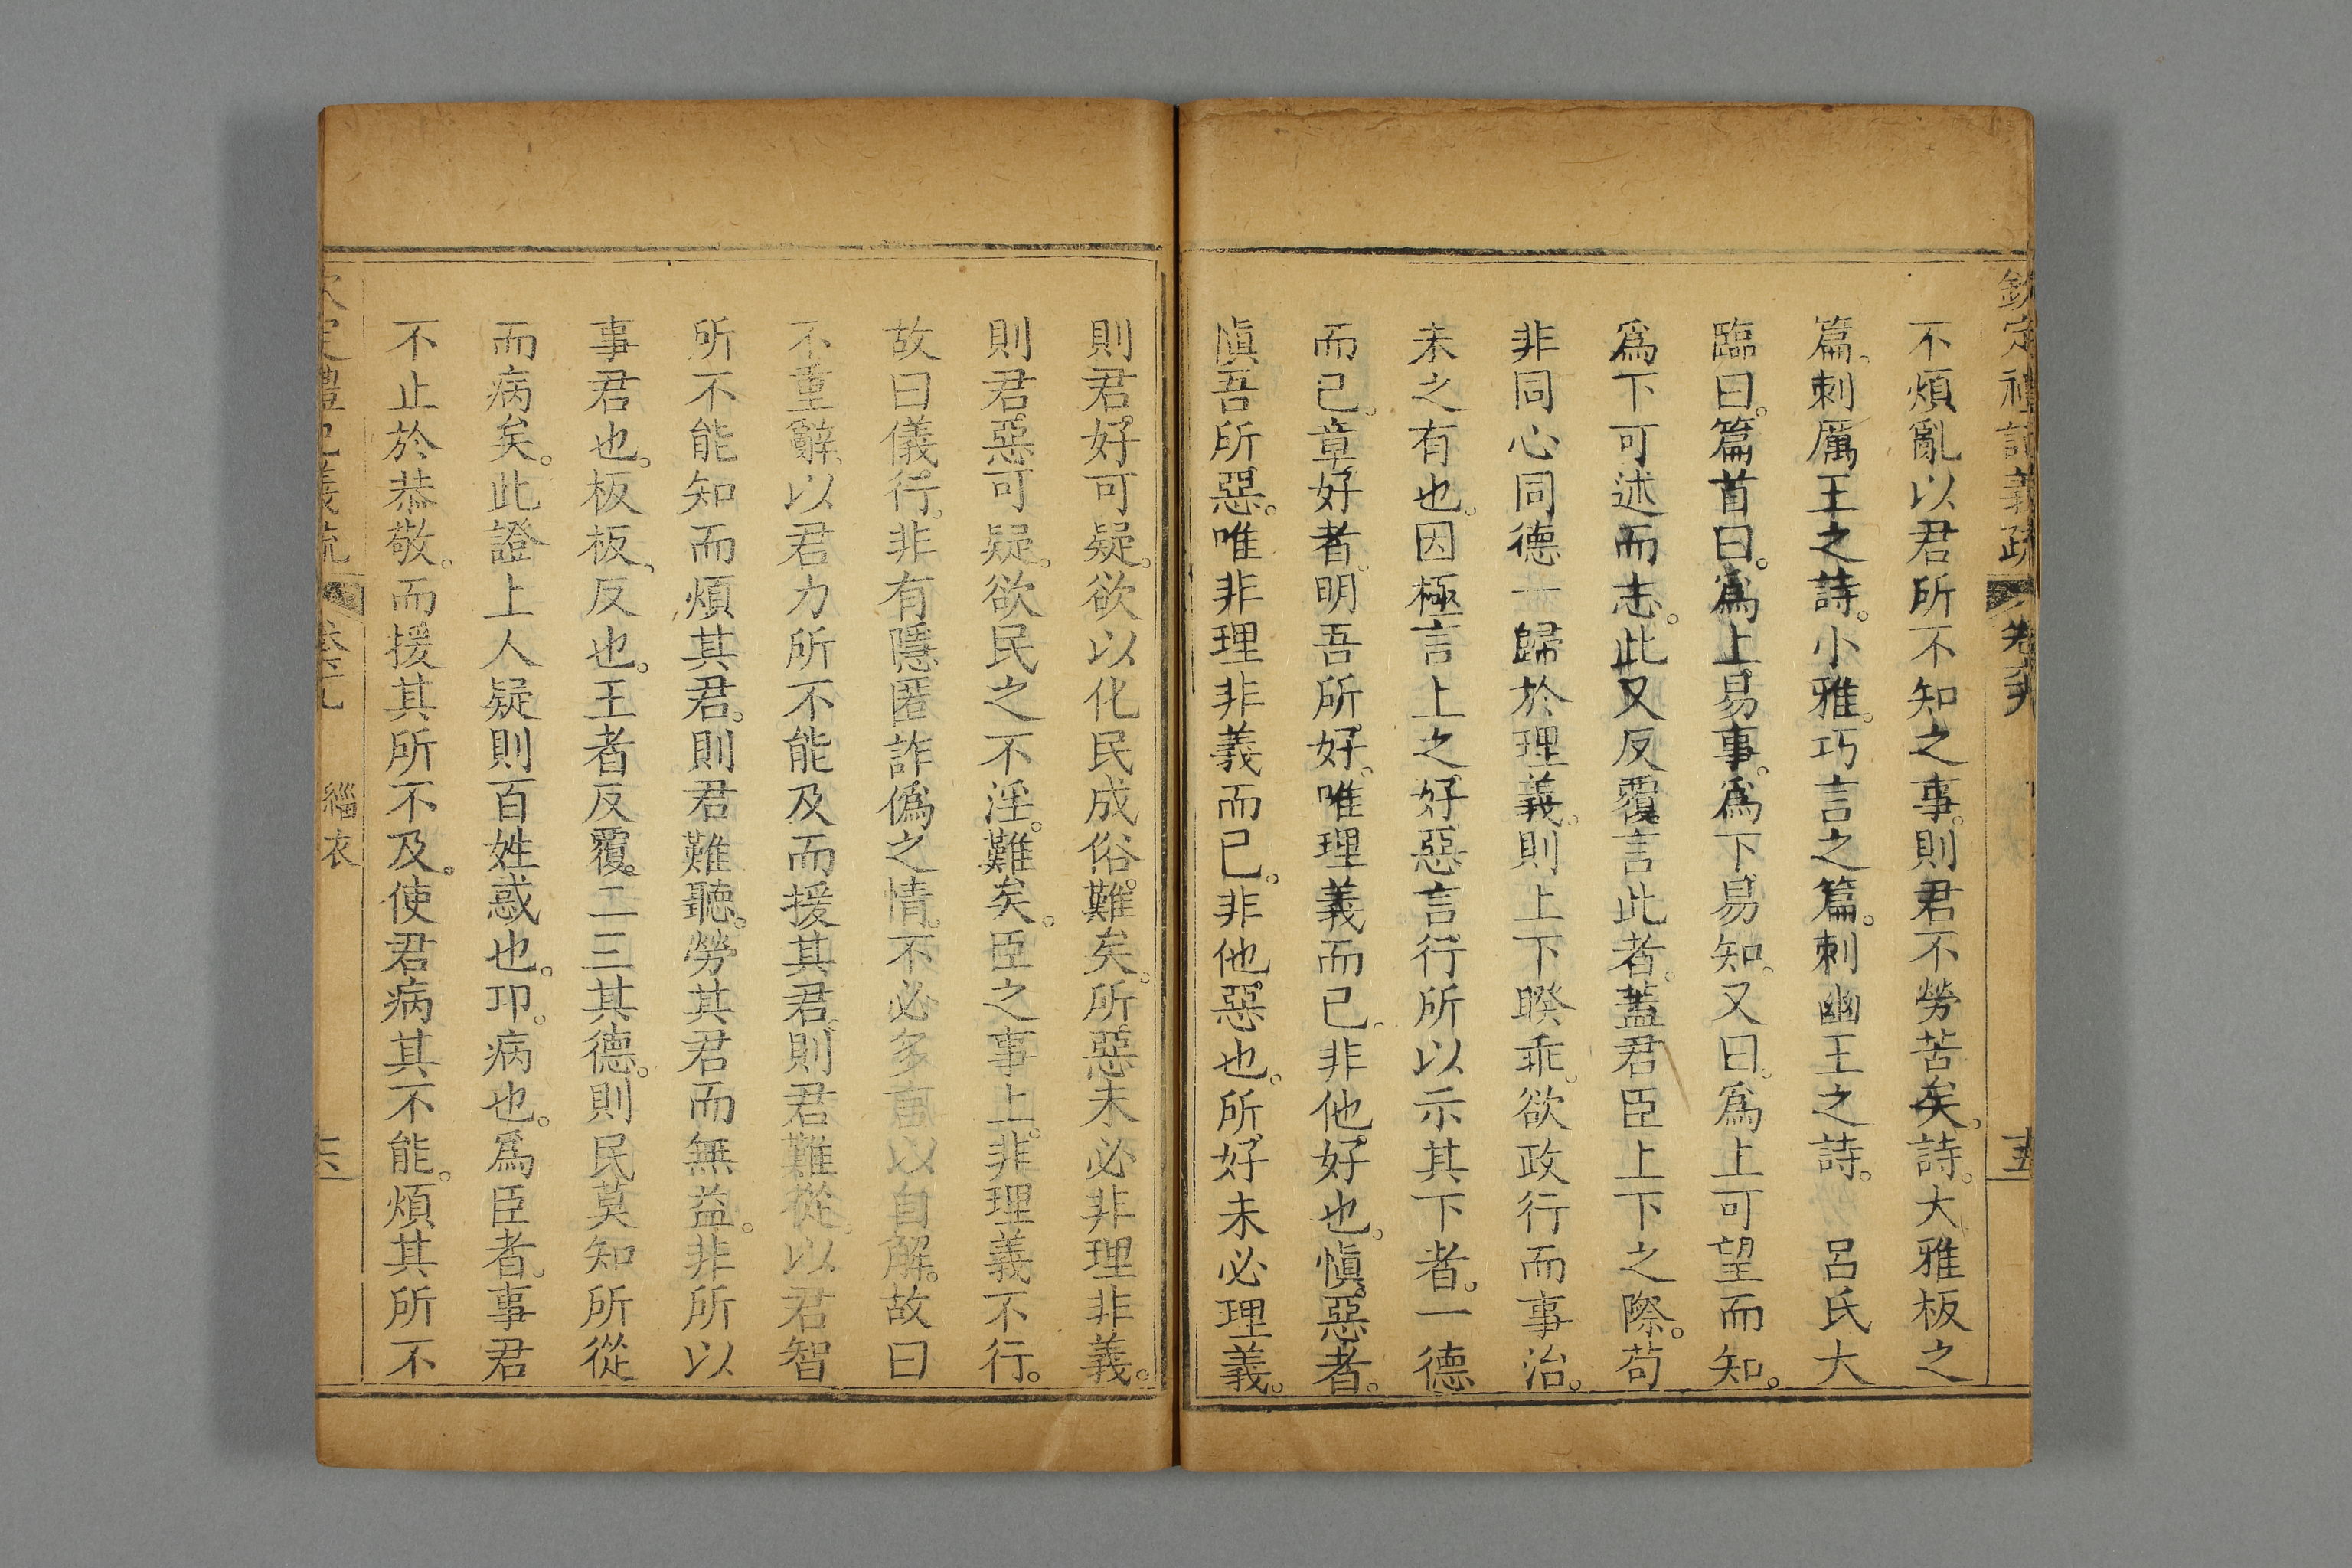 欽定禮記義疏 卷六十九 十五
不煩亂以君所不知之事。則君不勞苦矣。詩。大雅板之
篇。刺厲王之詩。小雅。巧言之篇。刺幽王之詩。 呂氏大
臨曰。篇首曰。爲上易事。爲下易知。又曰。爲上可望而知。
爲下可述而志。此又反覆言此者。蓋君臣上下之際。苟
非同心同德一歸於理義。則上下睽乖。欲政行而事治。
未之有也。因極言上之好惡言行所以示其下者。一德
而已。章好者。明吾所好。唯理義而已。非他好也。愼惡者。
愼吾所惡。唯非理非義而已。非他惡也。所好未必理義。
則君好可疑。欲以化民成俗。難矣。所惡未必非理非義。
則君惡可疑。欲民之不淫。難矣。臣之事上。非理義不行。
故曰儀行。非有隱匿詐僞之情。不必多言以自解。故曰
不重辭。以君力所不能及而援其君。則君難從。以君智
所不能知而煩其君。則君難聽。勞其君而無益。非所以
事君也。板板。反也。王者反覆。二三其德。則民莫知所從
而病矣。此證上人疑則百姓惑也。卭。病也。爲臣者。事君
不止於恭敬。而援其所不及。使君病其不能。煩其所不
定禮記義疏 緇衣